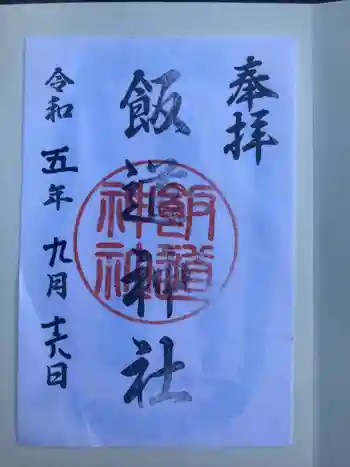 奉拝
飯道神社
飯道
神社
令和五年九月十六日